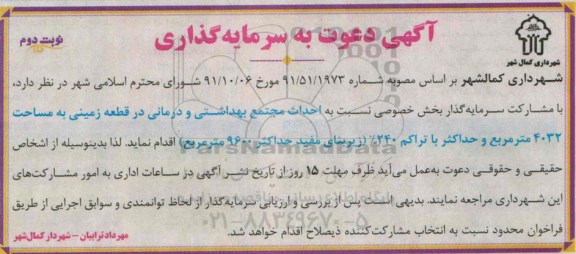 آگهی دعوت به سرمایه‌گذاری
نوبت دوم
شهرداری کمال شهر
شهرداری کمالشهر بر اساس مصوبه شماره ۹۱/۵۱/۱۹۷۳ مورخ ۹۱/۱۰/۰۶ شورای محترم اسلامی شهر در نظر دارد،
با مشارکت سرمایه‌گذار بخش خصوصی نسبت به احداث مجتمع بهداشتی و درمانی در قطعه زمینی به مساحت
۴۰۳۲ مترمربع و حداکثر با تراکم ۲۴۰٪ (زیربنای مفید حداکثر ۹۶۰۰ مترمربع) اقدام نماید. لذا بدینوسیله از اشخاص
حقیقی و حقوقی دعوت به‌عمل می‌آید ظرف مهلت ۱۵ روز از تاریخ نشر آگهی در ساعات اداری به امور مشارکت‌های
این شهرداری مراجعه نمایند. بدیهی است پس از بررسی و ارزیابی سرمایه‌گذار از لحاظ توانمندی و سوابق اجرایی از طریق
فراخوان محدود نسبت به انتخاب مشارکت‌کننده ذیصلاح اقدام خواهد شد.
مهرداد ترابیان – شهردار کمال‌شهر
ParsNamadData
۰۲۱-۸۸۳۴۹۶۷۰-۵